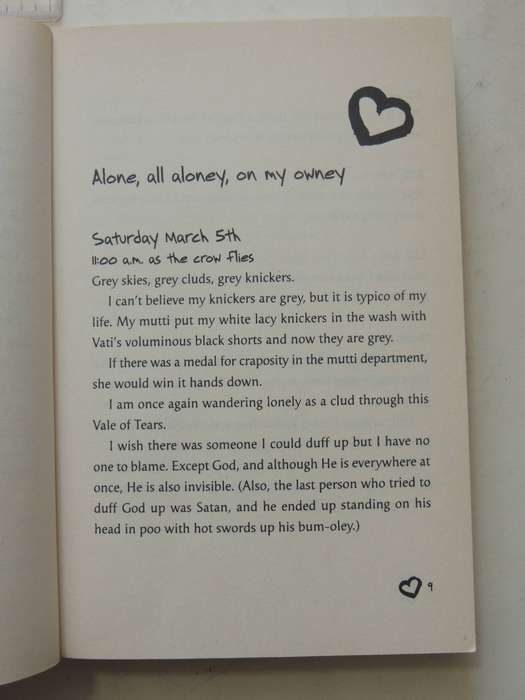 Alone, all aloney, on my owney
Saturday March 5th
11:00 a.m. as the crow flies
Grey skies, grey cluds, grey knickers.
I can't believe my knickers are grey, but it is typico of my
life. My mutti put my white lacy knickers in the wash with
Vati's voluminous black shorts and now they are grey.
If there was a medal for craposity in the mutti department,
she would win it hands down.
I am once again wandering lonely as a clud through this
Vale of Tears.
I wish there was someone I could duff up but I have no
one to blame. Except God, and although He is everywhere at
once, He is also invisible. (Also, the last person who tried to
duff God up was Satan, and he ended up standing on his
head in poo with hot swords up his bum-oley.)
9